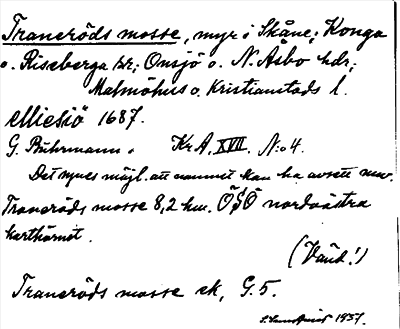 Traneröds mosse, myr i Skåne; Konga
o. Riseberga sr; Onsjö o. N. Åsbo hdr;
Malmöhus o. Kristianstads l.
1687.
G. Buhrmann. Kr.A. XVII. N:o 4.
Det synes möjl. att namnet kan ha avsett nuv.
Traneröds mosse 8,2 km. ÖSÖ nordvästra
karthörnet.
(Vänd!)
Traneröds mosse ek, G. 5.
1937.